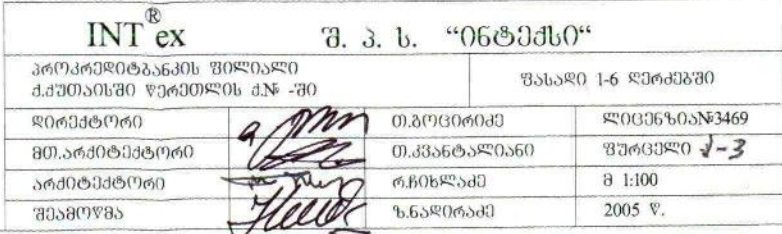 INT®ex შ. პ. ს. “ინტექსი“
პროკრედიტბანკის ფილიალი
ქ.ქუთაისში წერეთლის ქ.№ -ში
ფასადი 1-6 ღერძებში
დირექტორი თ.გოცირიძე ლიცენზია№3469
მთ.არქიტექტორი თ.კვანტალიანი ფურცელი 1-3
არქიტექტორი რ.ჩიხლაძე მ 1:100
შეამოწმა ზ.ნადირაძე 2005 წ.